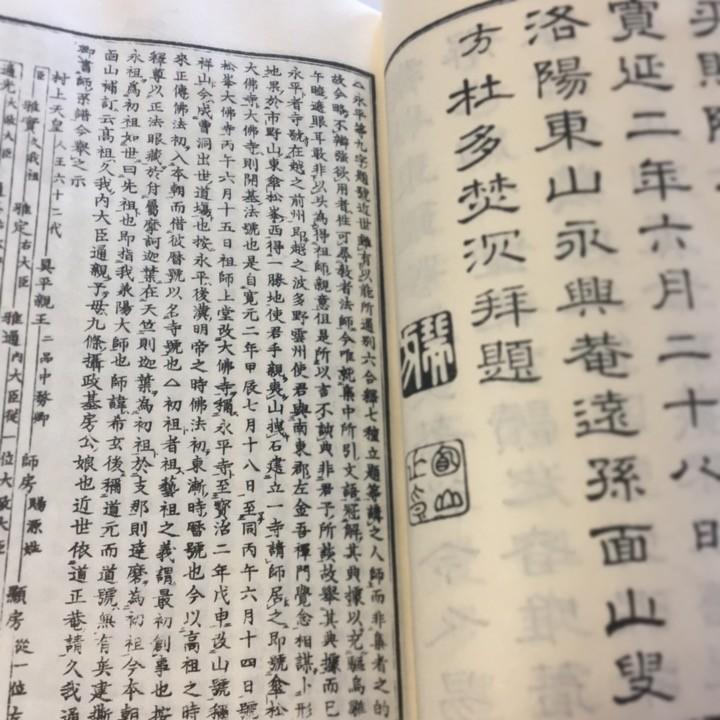 延二年六月二十八日
洛陽東山永興菴遠孫面山叟
方杜多焚沉拜題
△永平等九字題號近世雖有以能所通別六合釋七種立題等講之人師而非集者之的
故今略不辯強欲用者任可尋教者法師今唯就集中所引文語冠解其典據以充駆烏雛
午睡遮眼耳敢非以以為得祖師親意但是所以言不誠典非君子所談故舉其典據而已
永平者寺號在越之前州即越之波多野雲州使君與南東郡左金吾禪門覺念相謀卜形
地界於市野山東傘松峯西得一勝地使君手親夷山拽石建立一寺請師居之即號傘松
峯大佛寺大佛寺則開基法號也是自寬元二年甲辰七月十八日至同丙午六月十四日號
松峯大佛寺丙午六月十五日祖師上堂改大佛寺稱永平寺至寶治二年戊申改山號稱
祥山今成曹洞出世道場也按永平後漢明帝之時佛法初東漸時曆號也今以高祖之時
來正傳佛法初入本朝而借彼曆號以名寺號也△初祖者祖藝祖之義謂最初創事也按
釋尊以正法眼藏於付屬摩訶迦葉在天竺則迦葉為初祖於支那則達磨為初祖今本朝
永祖為初祖如世曰先祖也即指我東陽大師也師諱希玄後稱道元而道號無有矣建撕
面山補訂云高祖久我內大臣通親子母九條攝政基房公娘也近世依道正菴請久我通
御書師系錯今舉之示
村上天皇 人王六十二代 具平親王 二品中務卿 師房 賜源姓 顯房 從一位左
臣 雅實 久我祖 雅定 右大臣 雅通 內大臣從一位大政大臣